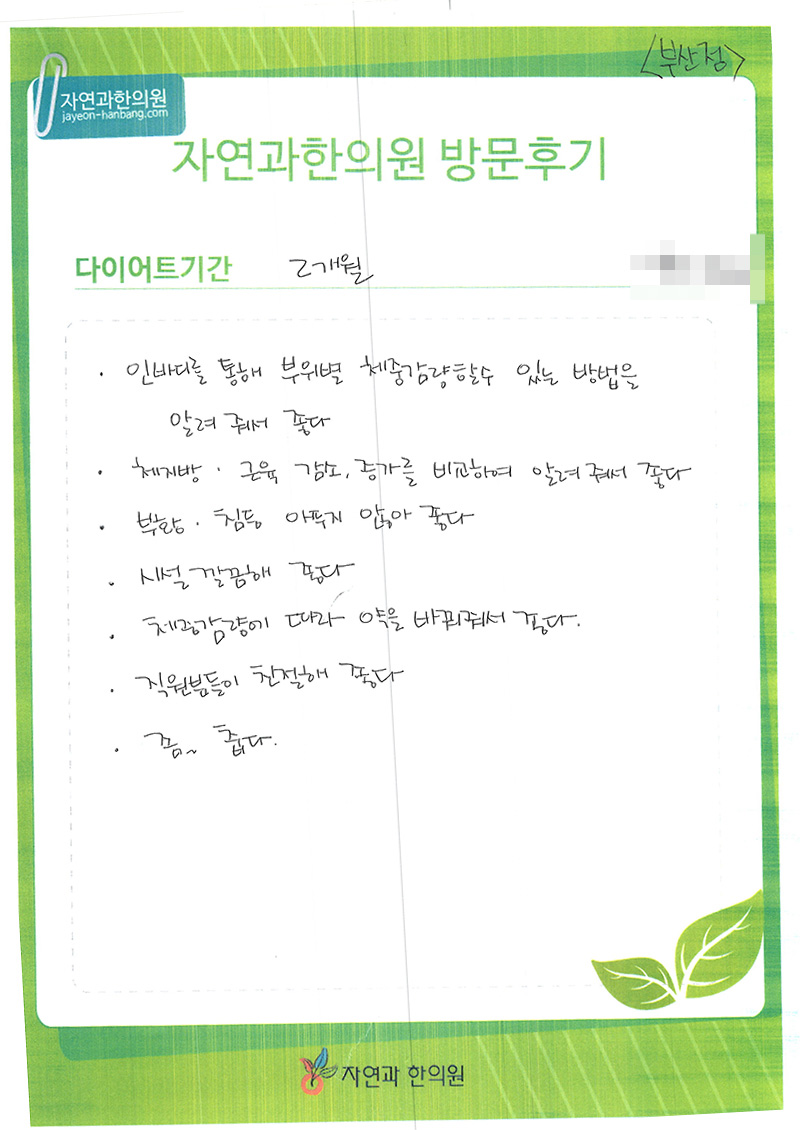 <부산점>
자연과한의원
jayeon-hanbang.com
자연과한의원 방문후기
다이어트기간 2개월
· 인바디를 통해 부위별 체중감량할수 있는 방법을
알려 줘서 좋다
· 체지방 · 근육 감소, 증가를 비교하여 알려줘서 좋다
· 부항 · 침등 아푸지 않아 좋다
· 시설 깔끔해 좋다
· 체중감량에 따라 약을 바꿔줘서 좋다.
· 직원분들이 친절해 좋다
· 쫌~ 춥다.
자연과 한의원